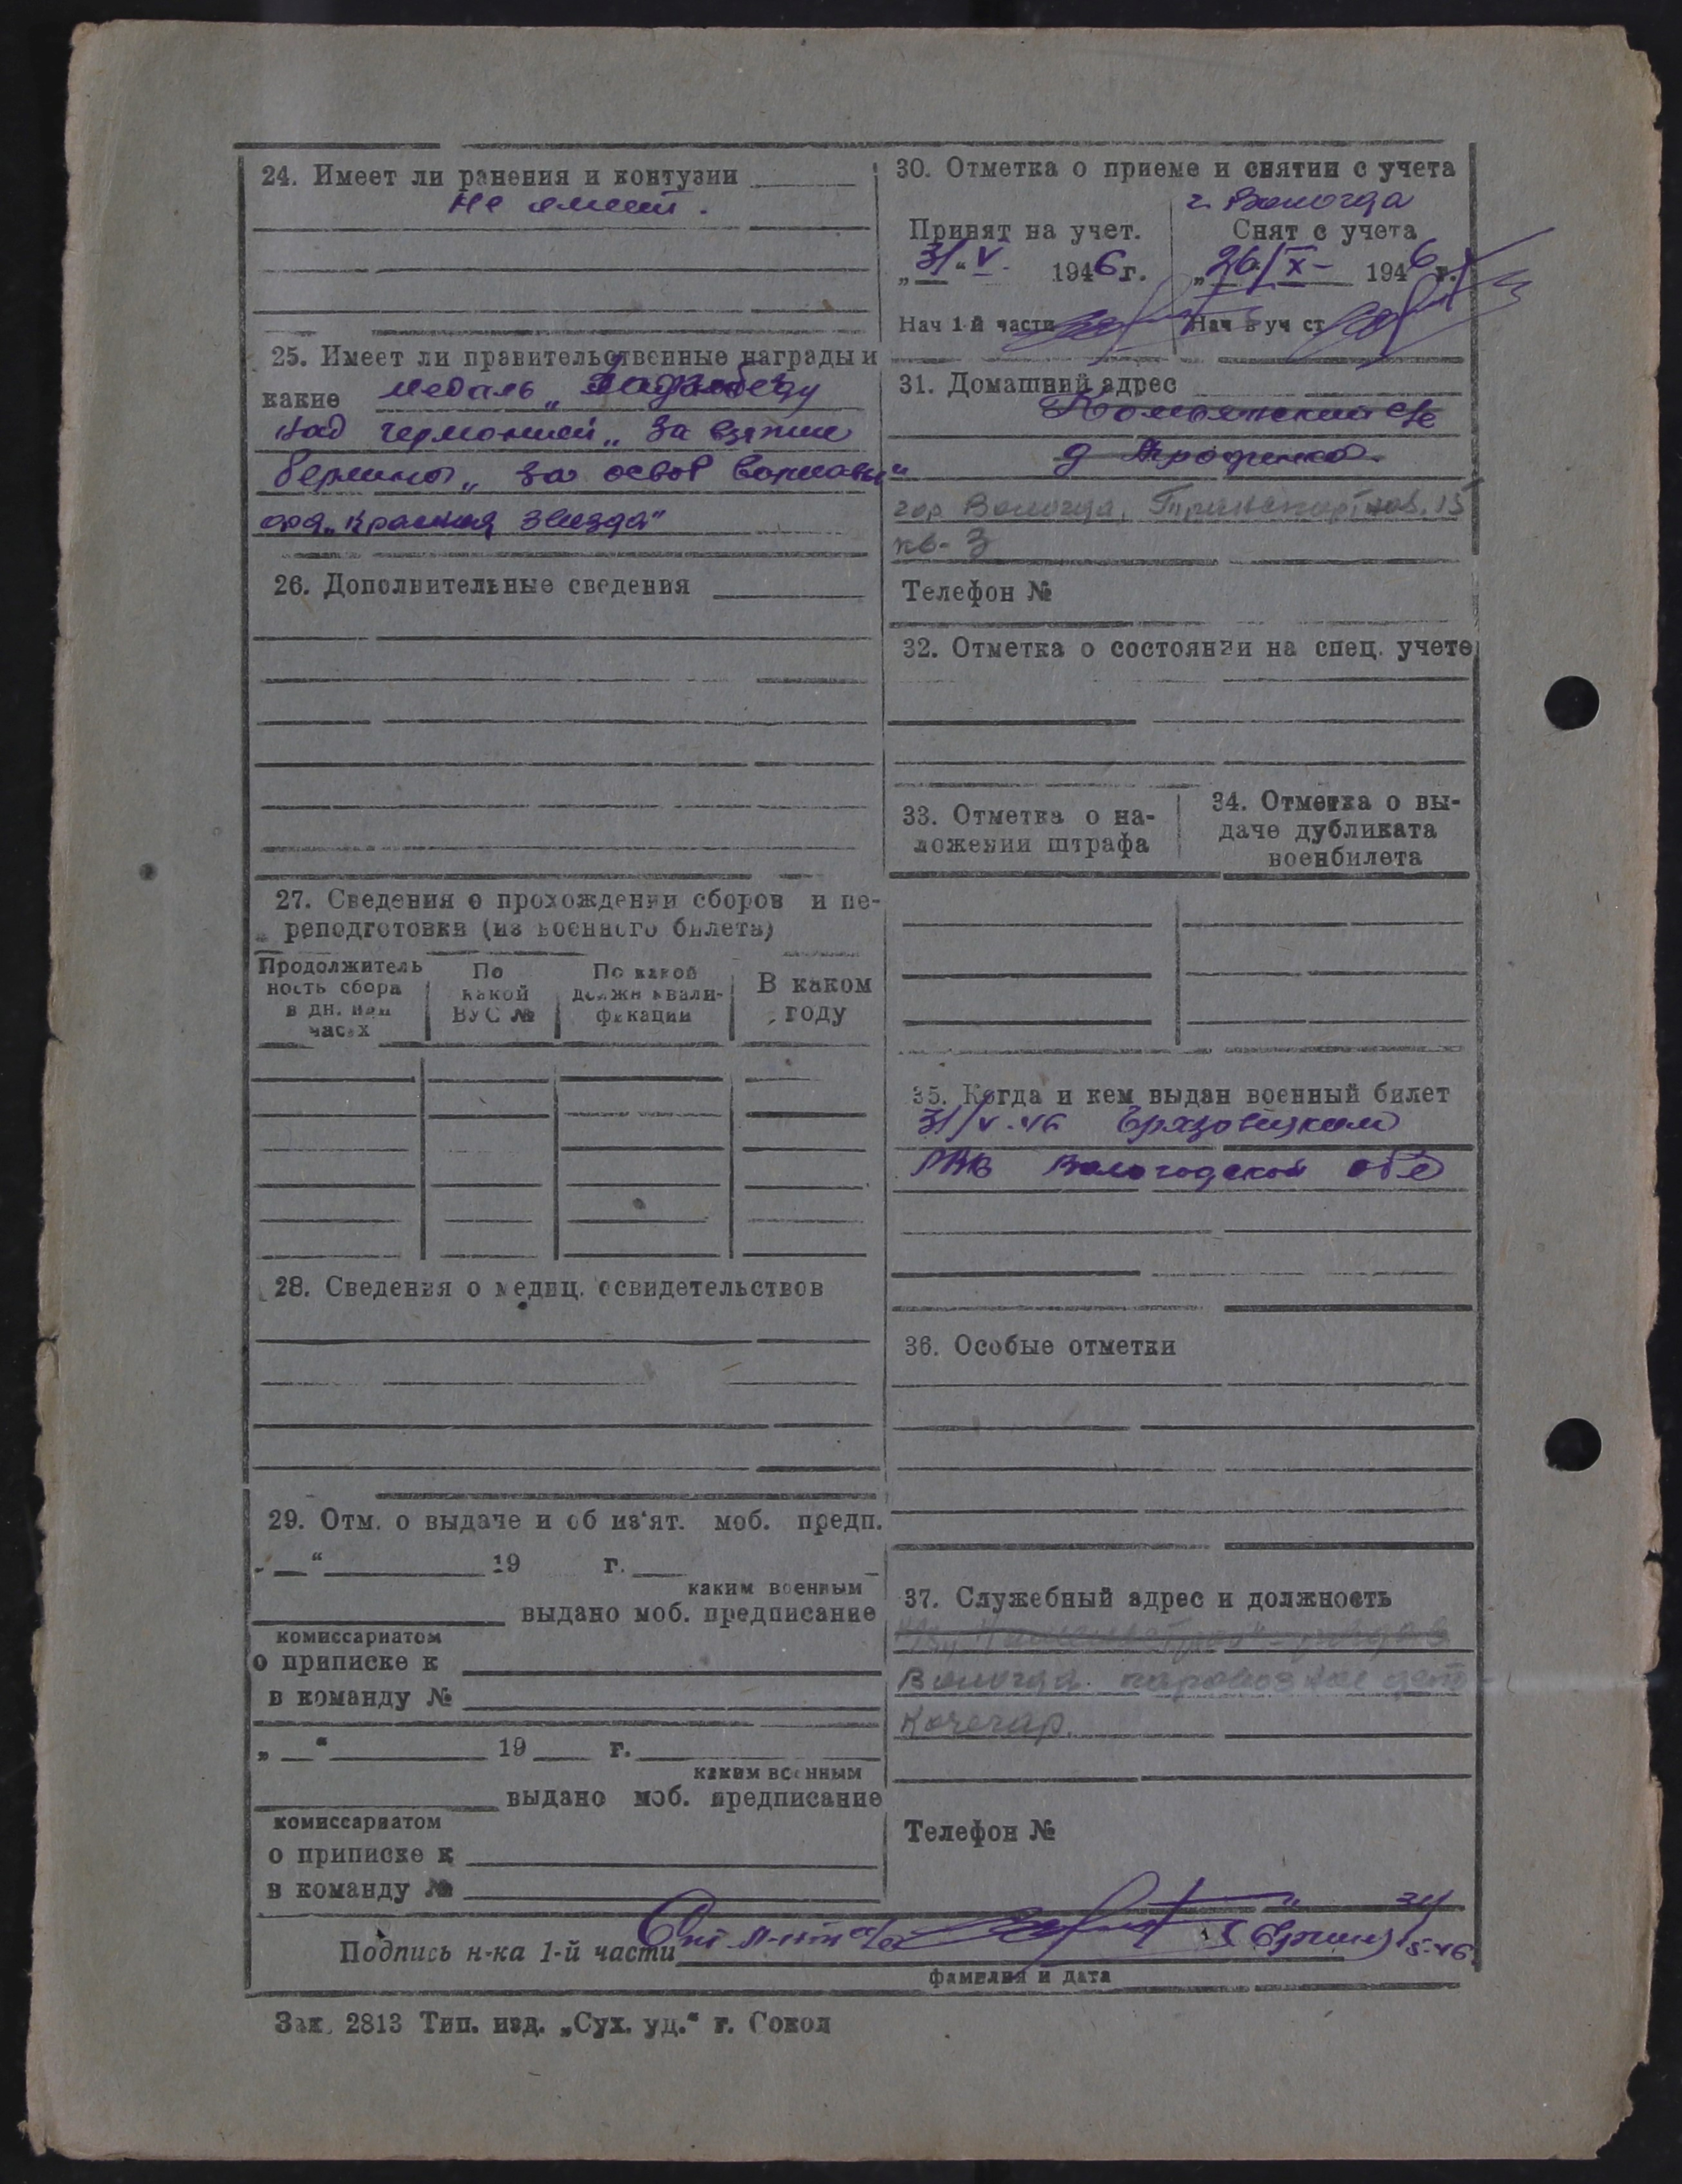 24. Имеет ли ранения и контузии
не имеет.
25. Имеет ли правительственные награды и
какие медаль „За победу
над германией„ За взятие
берлина„ за освоб варшавы"
орд „Красная Звезда"
26. Дополнительные сведения
27. Сведения о прохождении сборов и пе-
реподготовки (из военного билета)
Продолжитель
ность сбора
в дн. или
часах
По
какой
ВУС №
По какой
должн квали-
фикации
В каком
году
28. Сведения о медиц. освидетельствов
29. Отм. о выдаче и об из'ят. моб. предп.
„ “ 19 г.
каким военным
выдано моб. предписание
комиссариатом
о приписке к
в команду №
„ “ 19 г.
каким военным
выдано моб. предписание
комиссариатом
о приписке к
в команду №
30. Отметка о приеме и снятии с учета
г. Вологда
Принят на учет.
„31“ V 1946 г.
Нач 1-й части
Снят с учета
„26/X- 1946 г.
Нач в уч ст
31. Домашний адрес
с/с
д
гор Вологда, Транспортная, 15
кв- 3
Телефон №
32. Отметка о состоянии на спец. учете
33. Отметка о на-
ложении штрафа
34. Отметка о вы-
даче дубликата
военбилета
35. Когда и кем выдан военный билет
31/V-46 Грязовецким
РВК Вологодской обл
36. Особые отметки
37. Служебный адрес и должность
Вологда паровозное депо
Кочегар.
Телефон №
Подпись н-ка 1-й части
фамилия и дата
Зак. 2813 Тип. изд. „Сух. уд.“ г. Сокол